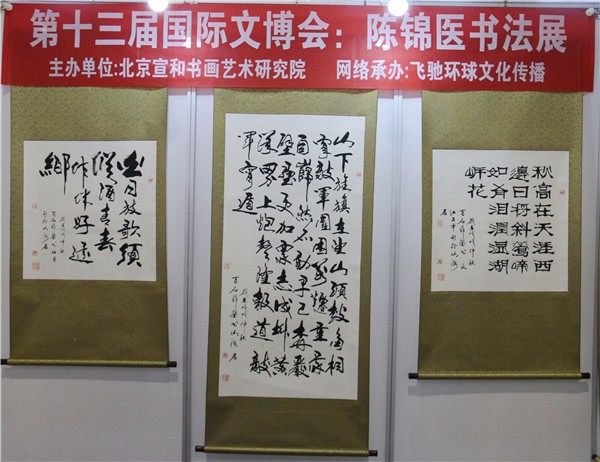 第十三届国际文博会：陈锦医书法展
主办单位:北京宣和书画艺术研究院 网络承办:飞驰环球文化传播
白日放歌須
縱酒青春
作伴好還
鄉
山下旌旗在望山頭鼓角相
聞敵軍圍困萬千重我
自巋然不動早已森嚴
壁壘更加眾志成城黄
洋界上炮聲隆報道敵
軍宵遁
秋高在天涯西
邊日将斜鶯啼
如有泪潤湿湖